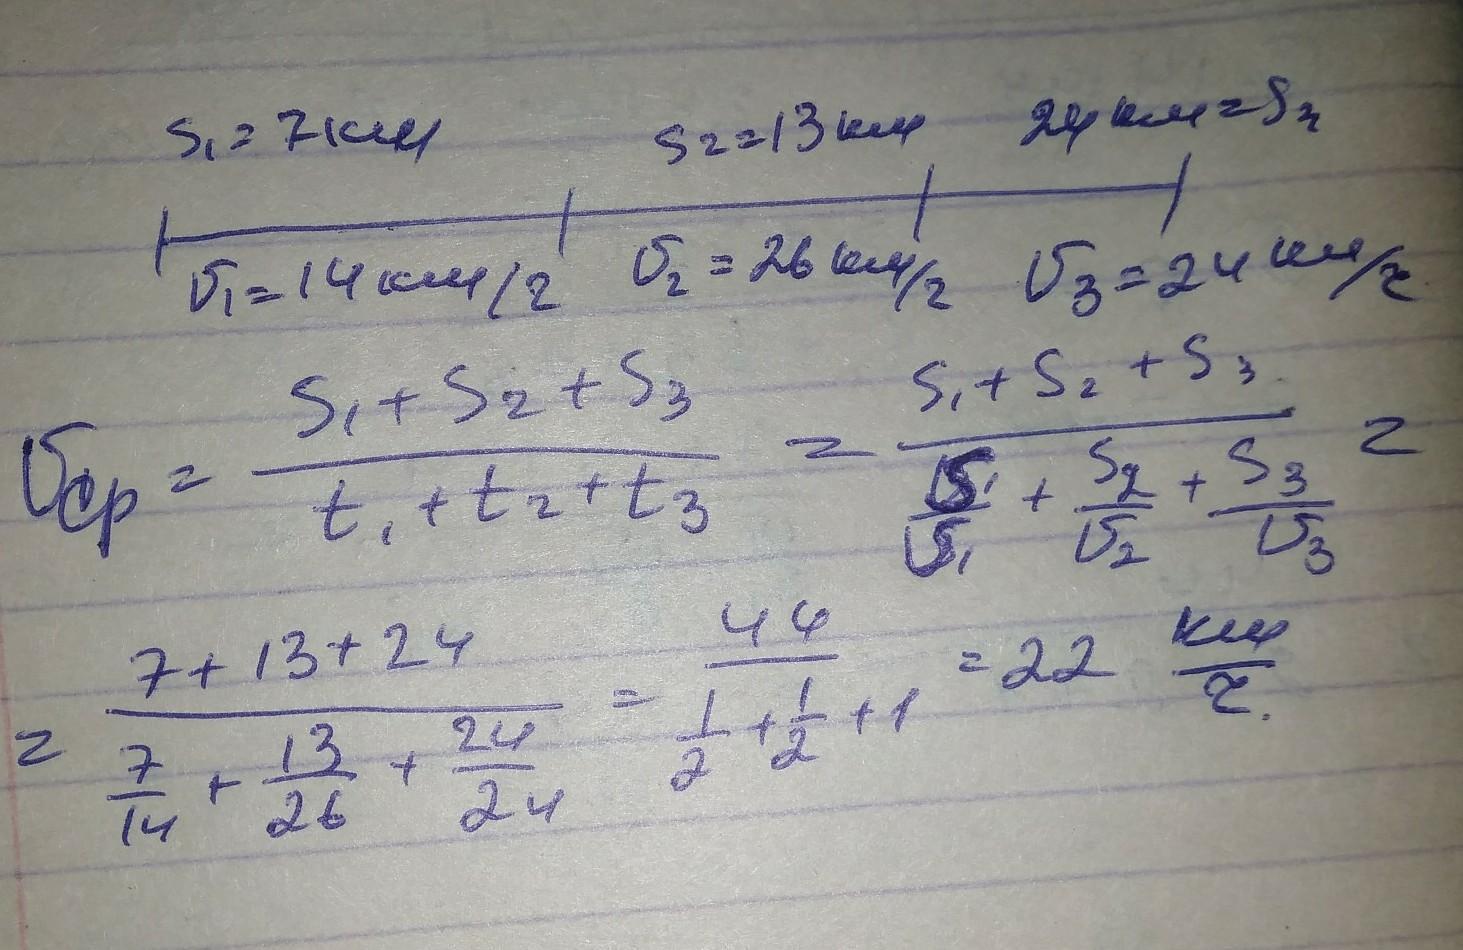 S₁ = 7 км S₂ = 13 км 24 км = S₃
υ₁ = 14 км/г υ₂ = 26 км/г υ₃ = 24 км/г
υср = (S₁ + S₂ + S₃)/(t₁ + t₂ + t₃) = (S₁ + S₂ + S₃)/(S₁/υ₁ + S₂/υ₂ + S₃/υ₃) =
= (7 + 13 + 24)/(7/14 + 13/26 + 24/24) = 44/(1/2 + 1/2 + 1) = 22 км/г.